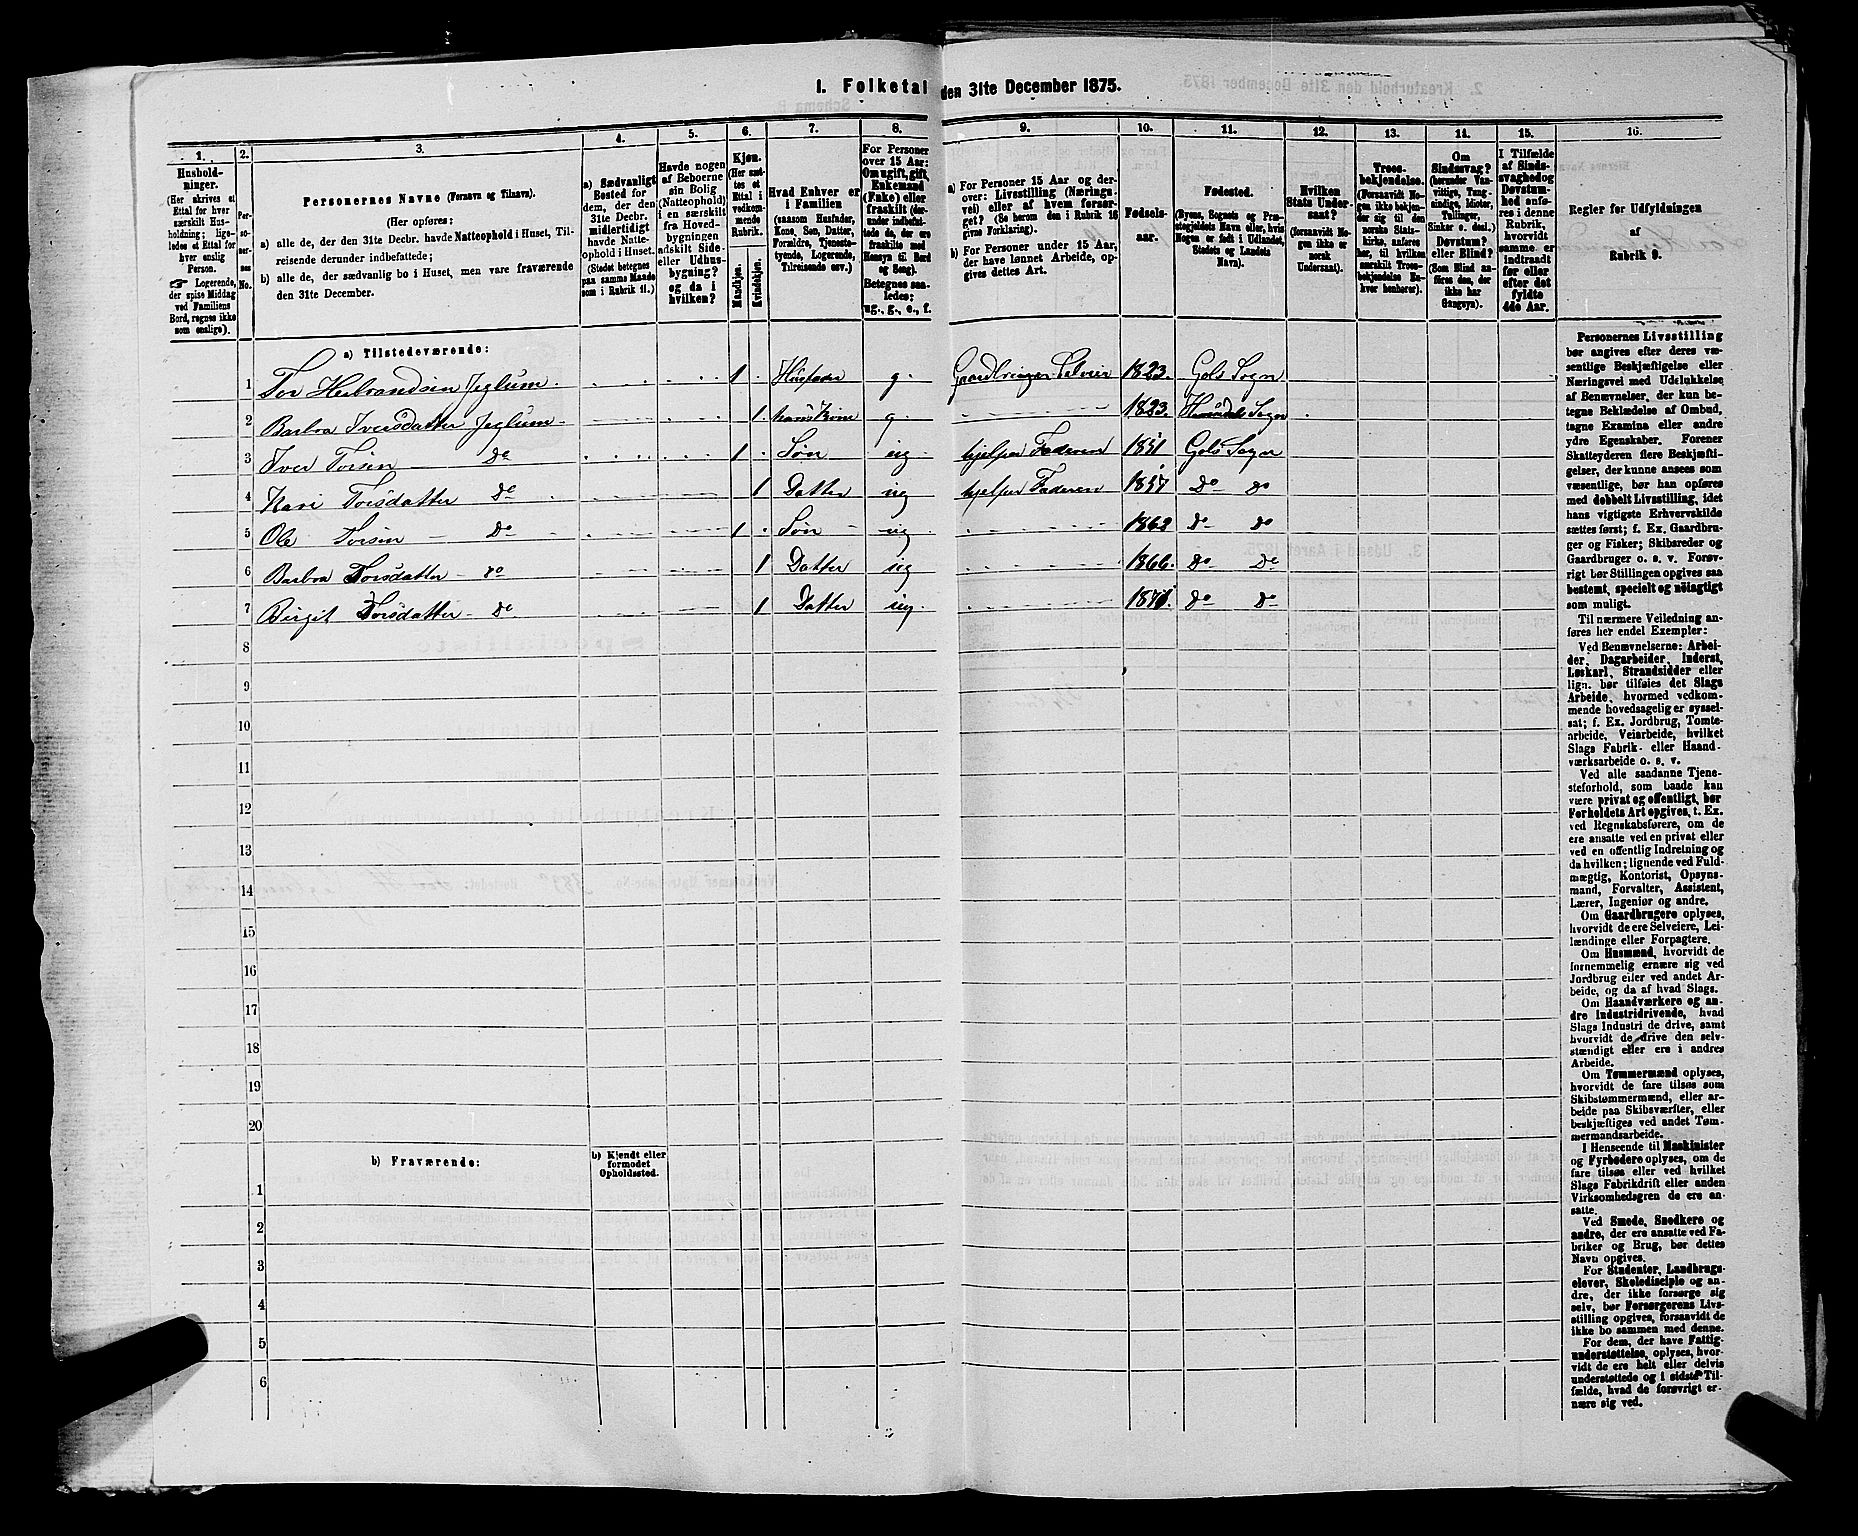 1. Folketal den 31te December 1875.
1. 2. 3. 4. 5. 6. 7. 8. 9. 10. 11. 12. 13. 14. 15. 16.
Hushold-
ninger.
(Her skrives et
Ettal for hver
særskilt Hus-
holdning; lige-
ledes et Ettal for
hver enslig
Person.
☞ Logerende,
der spise Middag
ved Familiens
Bord, regnes ikke
som enslige).
Per-
so-
ner-
nes
No.
Personernes Navne (Fornavn og Tilnavn).
(Her opføres:
a) alle de, der den 31te Decbr. havde Natteophold i Huset, Til-
reisende derunder indbefattede;
b) alle de, der sædvanlig bo i Huset, men vare fraværende
den 31te December.
a) Sædvanligt
Bosted for
dem, der den
31te Decbr.
midlertidigt
havde Natte-
ophold i Huset.
(Stedet betegnes
paa samme Maade
som i Rubrik 11.)
Havde nogen
af Beboerne
sin Bolig
(Natteophold)
i en særskilt
fra Hoved-
bygningen
adskilt Side-
eller Udhus-
bygning?
og da i
hvilken?
Kjøn.
(Her sæt-
tes et
Ettal i
vedkom-
mende
Rubrik.
Mandkjøn.
Kvindekjøn.
Hvad Enhver er
i Familien
(saasom Husfader,
Kone, Søn, Datter,
Forældre, Tjeneste-
tyende, Logerende,
Tilreisende osv.)
For Personer
over 15 Aar:
Om ugift, gift,
Enkemand
(Enke) eller
fraskilt (der-
under indbefat-
tede de, der ere
fraskilte med
Hensyn til Bord
og Seng).
Betegnes saa-
ledes:
ug., g., e., f.
a) For Personer 15 Aar og der-
over: Livsstilling (Nærings-
vei) eller af hvem forsør-
get? (Se herom den i Rubrik 16
givne Forklaring).
b) For Personer under 15 Aar,
der have lønnet Arbeide, op-
gives dettes Art.
Fødsels-
aar.
Fødested.
(Byens, Sognets og Præ-
stegjeldets Navn eller, hvis
Nogen er født i Udlandet,
Stedets og Landets
Navn).
Hvilken
Stats Under-
saat?
(forsaavidt No-
gen ikke er
norsk
Undersaat).
Troes-
bekjendelse.
(Forsaavidt No-
gen ikke bekjen-
der sig til den
norske Stats-
kirke, anføres
her, til hvilken
særskilt Troes-
bekjendelse En-
hver henhører).
Om
Sindssvag?
(herunder Van-
vittige, Tung-
sindige, Idioter,
Tullinger,
Sinker o. desl.)
Døvstum?
eller Blind?
(Som Blind an-
føres den, der
ikke har
Gangsyn).
I Tilfælde
af Sinds-
svaghed og
Døvstum-
hed anfø-
res i denne
Rubrik,
hvorvidt
samme er
indtraadt
før eller
efter det
fyldte
4de Aar.
Regler for Udfyldningen
af
Rubrik 9.
a) Tilstedeværende:
1 Tor Herbrandsen Jeglum 1 Husfader g. Gaardbruger Selveier 1823. Gols Sogn
2 Barbra Iversdatter Jeglum 1. hans Kone g. 1823. Hemsdal Sogn
3 Iver Torsen — do 1 Søn ug hjelper Faderen 1851 Gols Sogn
4 Kari Torsdatter do 1 Datter ug hjelper Faderen 1857 do do
5 Ole Torsen — do 1 Søn ug 1862 do do
6 Barbra Torsdatter — do 1 Datter ug 1866. do do
7 Birgit Torsdatter — do 1 Datter ug. 1871. do do
8
9
10
11
12
13
14
15
16
17
18
19
20
b) Fraværende:
b) Kjendt eller
formodet
Opholdssted.
1
2
3
4
5
6
Personernes Livsstilling
bør angives efter deres væ-
sentlige Beskjæftigelse eller
Næringsvei med Udelukkelse
af Benævnelser, der kun be-
tegne Beklædelse af Ombud,
tagne Examina eller andre
ydre Egenskaber. Forener
Skatteyderen flere Beskjæfti-
gelser, der kunne ansees som
væsentlige, bør han opføres
med dobbelt Livsstilling, idet
hans vigtigste Erhvervskilde
sættes først; f. Ex. Gaardbru-
ger og Fisker; Skibsreder og
Gaardbruger o. s. v. Forøv-
rigt bør Stillingen opgives saa
bestemt, specielt og nøiagtigt
som muligt.
Til nærmere Veiledning an-
føres her endel Exempler:
Ved Benævnelserne: Arbei-
der, Dagarbeider, Inderst,
Løskarl, Strandsidder eller
lign. bør tilføies det Slags
Arbeide, hvormed vedkom-
mende hovedsagelig er syssel-
sat; f. Ex. Jordbrug, Tomte-
arbeide, Veiarbeide, hvilket
Slags Fabrik- eller Haand-
værksarbeide o. s. v.
Ved alle saadanne Tjene-
steforhold, som baade kan
være privat og offentligt, bør
Forholdets Art opgives, t. Ex.
ved Regnskabsførere, om de
ere ansatte ved en privat eller
ved en offentlig Indretning og
da hvilken; lignende ved Fuld-
mægtig, Kontorist, Opsyns-
mand, Forvalter, Assistent,
Lærer, Ingeniør og andre.
Om Gaardbrugere oplyses,
hvorvidt de ere Selveiere, Lei-
lændinge eller Forpagtere.
Om Husmænd, hvorvidt de
fornemmelig ernære sig ved
Jordbrug eller ved andet Ar-
beide, og da af hvad Slags.
Om Haandværkere og an-
dre Industridrivende, hvad
Slags Industri de drive, samt
hvorvidt de drive den selv-
stændigt eller ere i andres
Arbeide.
Om Tømmermænd oplyses,
hvorvidt de fare tilsøs som
Skibstømmermænd, eller ar-
beide paa Skibsværfter, eller
beskjæftiges ved andet Tøm-
mermandsarbeide.
I Henseende til Maskinister
og Fyrbødere oplyses, om de
fare tilsøs eller ved hvilket
Slags Fabrikdrift eller anden
Virksomhedsgren de ere an-
satte.
Ved Smede, Snedkere og
andre, der ere ansatte ved Fa-
briker og Brug, bør dettes
Navn opgives.
For Studenter, Landbrugs-
elever, Skoledisciple og an-
dre, der ikke forsørge sig
selv, bør Forsørgerens Livs-
stilling opgives, forsaavidt de
ikke bo sammen med denne.
For dem, der have Fattig-
understøttelse, oplyses, hvor-
vidt de ere helt eller delvis
understøttede og i sidste Til-
fælde, hvad de forøvrigt er-
nære sig ved.